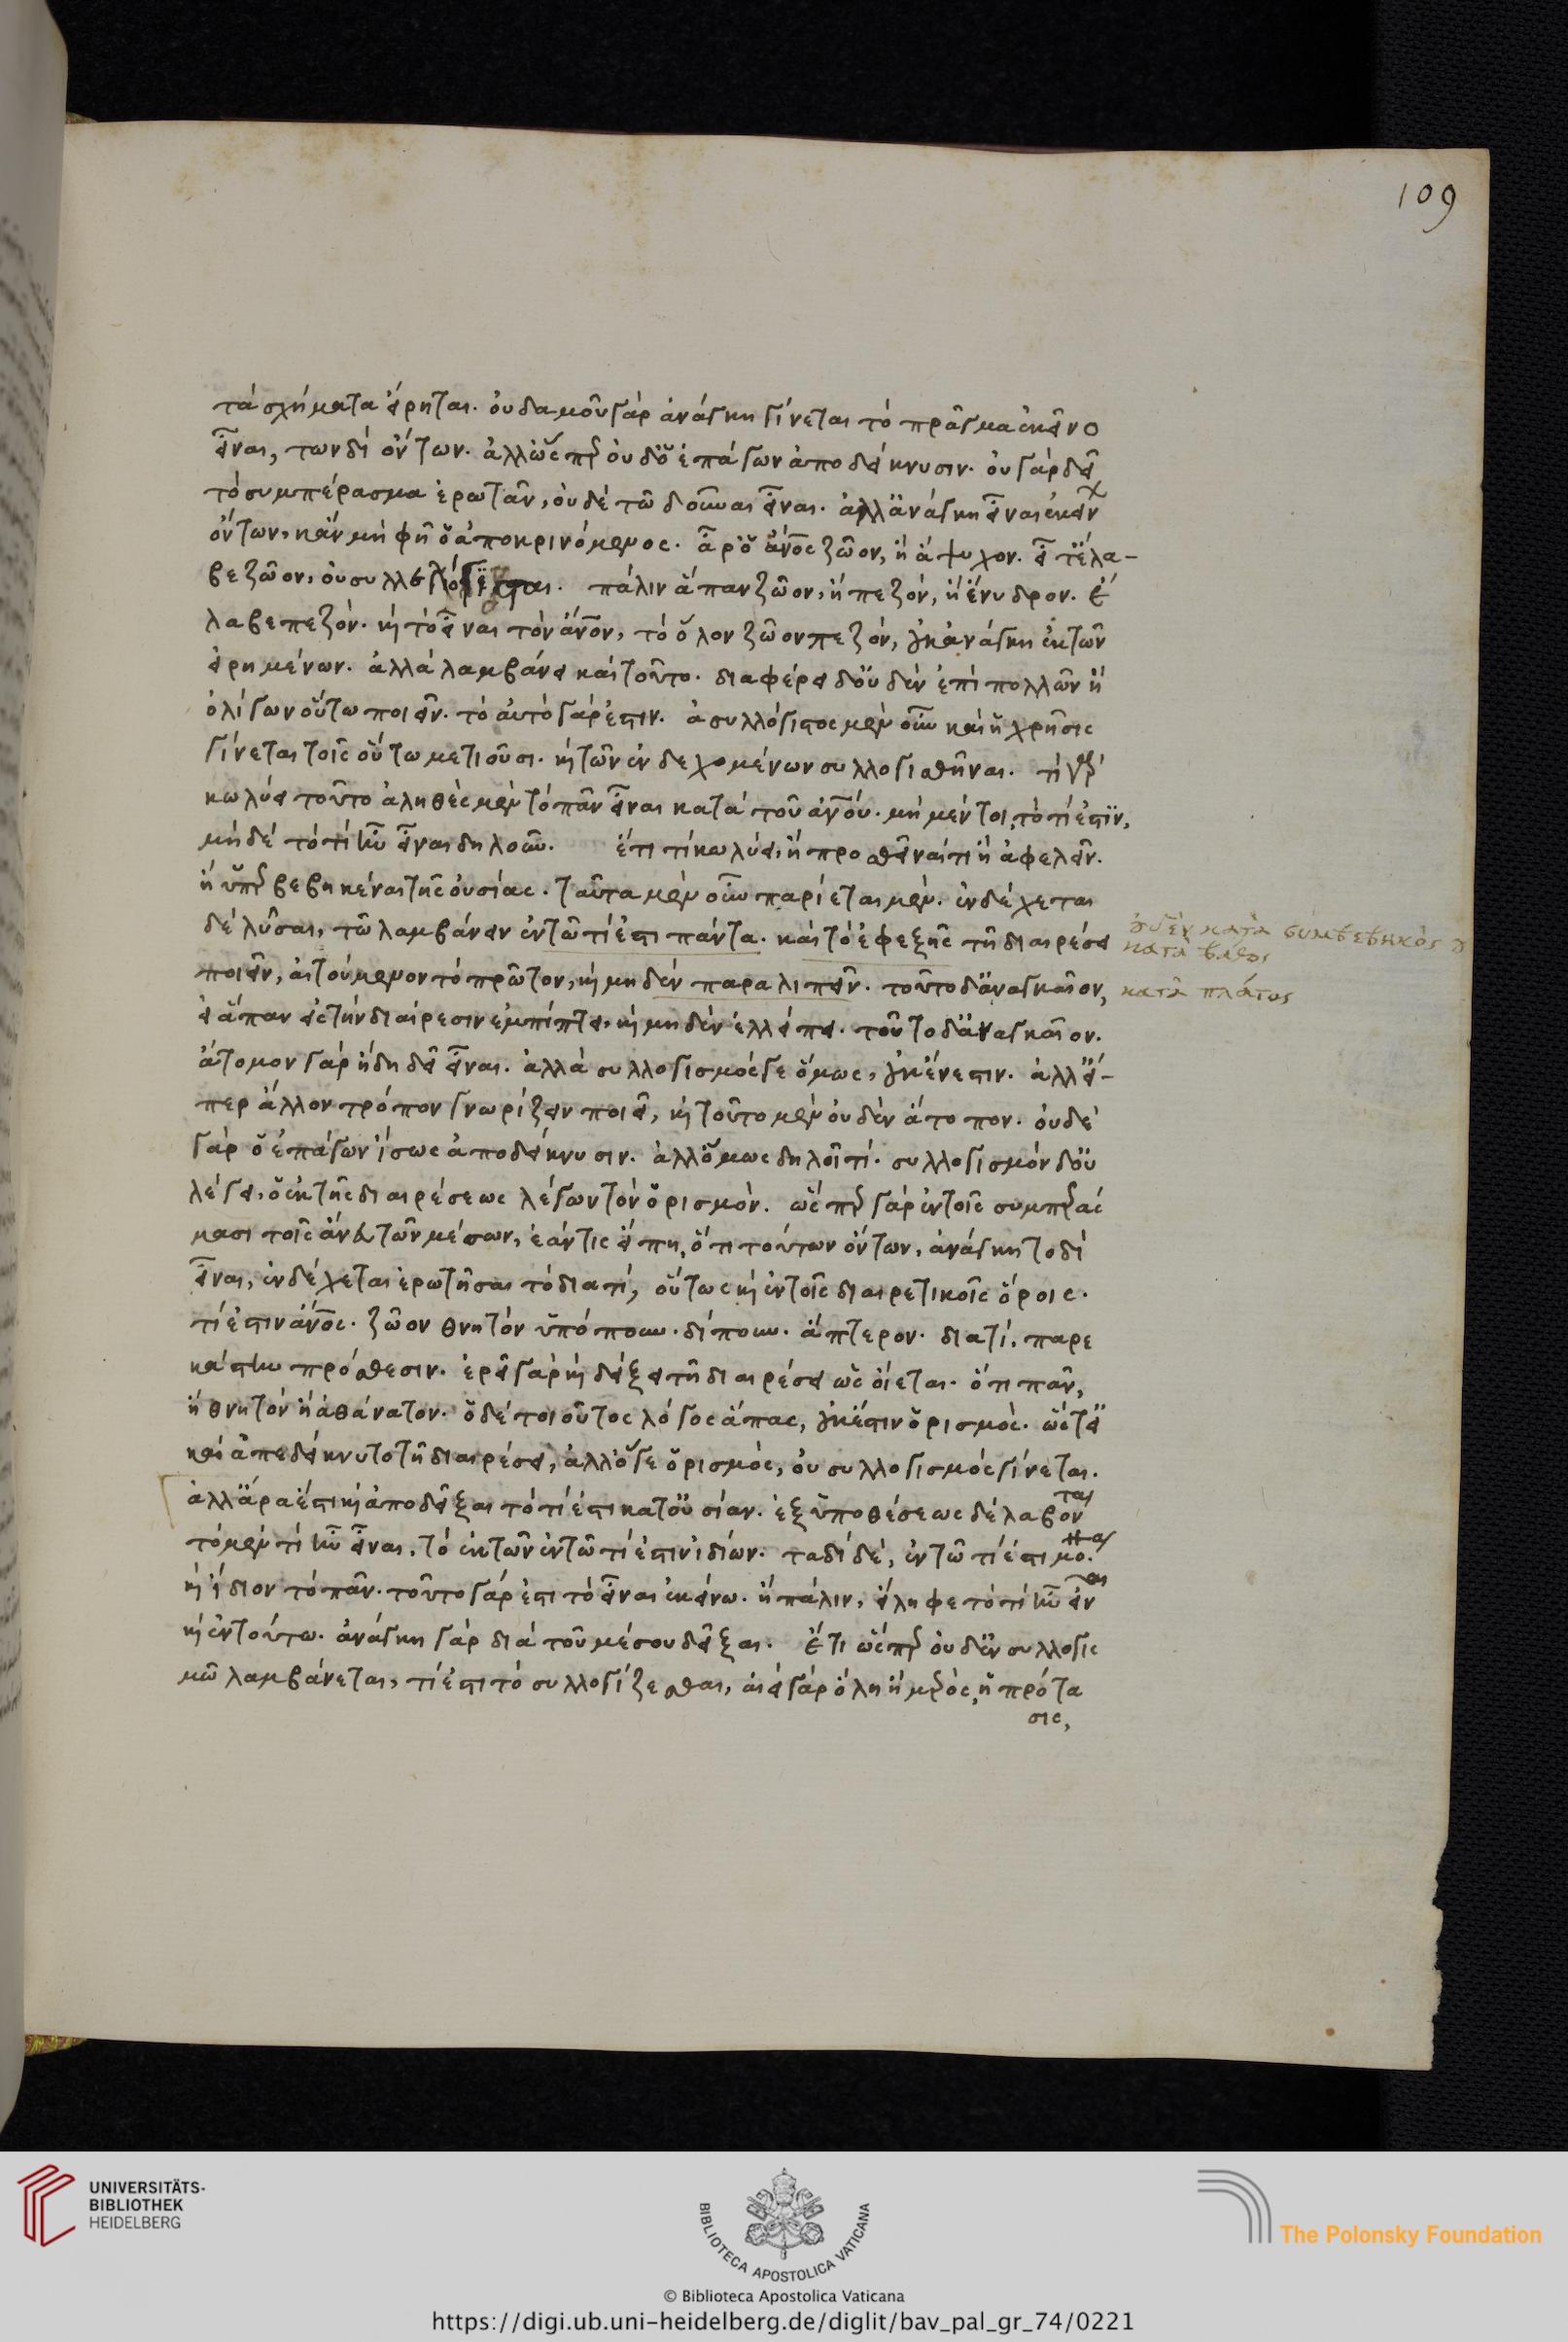 109
τὰ σχήματα εἴρηται. οὐδαμοῦ γὰρ ἀνάγκη γίνεται τὸ πρᾶγμα ἐκεῖνο
εἶναι, τωνδὶ ὄντων. ἀλλ' ὥσπερ οὐδ' ὁ ἐπάγων ἀποδείκνυσιν. οὐ γὰρ δεῖ
τὸ συμπέρασμα ἐρωτᾶν, οὐδὲ τῶ δοῦναι εἶναι. ἀλλ' ἀνάγκη εἶναι ἐκείνων
ὄντων, κἂν μὴ φῆ ὁ ἀποκρινόμενος. ἆρ' ὁ ἄνος ζῶον, ἢ ἄψυχον. εἶτ' ἔλα-
βε ζῶον, οὐ συλλελόγισται. πάλιν ἅπαν ζῶον, ἢ πεζὸν, ἢ ἔνυδρον. ἔ
λαβε πεζόν. καὶ τὸ εἶναι τὸν ἄνον, τὸ ὅλον ζῶον πεζόν, οὐκ ἀνάγκη ἐκ τῶν
εἰρημένων. ἀλλὰ λαμβάνει καὶ τοῦτο. διαφέρει δ' οὐδὲν ἐπὶ πολλῶν ἢ
ὀλίγων οὕτω ποιεῖν. τὸ αὐτὸ γάρ ἐστιν. ἀσυλλόγιστος μὲν οὖν καὶ ἡ χρῆσις
γίνεται τοῖς οὕτω μετιοῦσι. καὶ τῶν ἐνδεχομένων συλλογισθῆναι. τί γὰρ
κωλύει τοῦτο ἀληθὲς μὲν τὸ πᾶν εἶναι κατὰ τοῦ ἀνου. μὴ μέντοι τὸ τί ἐστιν,
μηδὲ τὸ τί ἦν εἶναι δηλοῦν. ἔτι τί κωλύει, ἢ προσθεῖναί τι ἢ ἀφελεῖν.
ἢ ὑπερβεβηκέναι τῆς οὐσίας. ταῦτα μὲν οὖν παρίεται μέν. ἐνδέχεται
δὲ λῦσαι, τῶ λαμβάνειν ἐν τῶ τί ἐστι πάντα. καὶ τὸ ἐφεξῆς τῆ διαιρέσει
ποιεῖν, αἰτούμενον τὸ πρῶτον, καὶ μηδὲν παραλιπεῖν. τοῦτο δ' ἀναγκαῖον,
εἰ ἅπαν εἰς τὴν διαίρεσιν ἐμπίπτει, καὶ μηδὲν ἐλλείπει. τοῦτο δ' ἀναγκαῖον.
ἄτομον γὰρ ἤδη δεῖ εἶναι. ἀλλὰ συλλογισμός γε ὅμως, οὐκ ἔνεστιν. ἀλλ' εἴ-
περ ἄλλον τρόπον γνωρίζειν ποιεῖ, καὶ τοῦτο μὲν οὐδὲν ἄτοπον. οὐδὲ
γὰρ ὁ ἐπάγων ἴσως ἀποδείκνυσιν. ἀλλ' ὅμως δηλοῖ τί. συλλογισμὸν δ' οὐ
λέγει, ὁ ἐκ τῆς διαιρέσεως λέγων τὸν ὁρισμὸν. ὥσπερ γὰρ ἐν τοῖς συμπεράς
μασι τοῖς ἄνευ τῶν μέσων, ἐάν τις εἴπη, ὅτι τούτων ὄντων, ἀνάγκη τοδὶ
εἶναι, ἐνδέχεται ἐρωτῆσαι τὸ διατί, οὕτως καὶ ἐν τοῖς διαιρετικοῖς ὅροις.
τί ἐστιν ἄνος. ζῶον θνητόν ὑπόπουν. δίπουν. ἄπτερον. διατί. παρ' ἑ
κάστην πρόσθεσιν. ἐρεῖ γὰρ καὶ δείξει τῆ διαιρέσει ὡς οἴεται. ὅτι πᾶν,
ἢ θνητὸν ἢ ἀθάνατον. ὁ δὲ τοιοῦτος λόγος ἅπας, οὐκ ἔστιν ὁρισμὸς. ὥστ' εἰ
καὶ ἀπεδείκνυτο τῆ διαιρέσει, ἀλλ' ὅ γε ὁρισμὸς, οὐ συλλογισμὸς γίνεται.
ἀλλ' ἆρα ἔστι καὶ ἀποδεῖξαι τὸ τί ἐστι κατ' οὐσίαν. ἐξ ὑποθέσεως δὲ λαβόντα
τὸ μὲν τί ἦν εἶναι, τὸ ἐκ τῶν ἐν τῶ τί ἐστιν ἰδίων. ταδὶ δὲ, ἐν τῶ τί ἐστι μόνα.
καὶ ἴδιον τὸ πᾶν. τοῦτο γάρ ἐστι τὸ εἶναι ἐκείνω. ἢ πάλιν, εἴληφε τὸ τί ἦν εἶναι
καὶ ἐν τούτω. ἀνάγκη γὰρ διὰ τοῦ μέσου δεῖξαι. Ἔτι ὥσπερ οὐδ' ἐν συλλογις
μῶ λαμβάνεται, τί ἐστι τὸ συλλογίζεσθαι, ἀεὶ γὰρ ὅλη ἢ μέρος, ἡ πρότα
σις,
κατὰ συμβεβηκὸς
κατὰ βάθος
κατὰ πλάτος
UNIVERSITÄTS-
BIBLIOTHEK
HEIDELBERG
BIBLIOTECA APOSTOLICA VATICANA
The Polonsky Foundation
© Biblioteca Apostolica Vaticana
https://digi.ub.uni-heidelberg.de/diglit/bav_pal_gr_74/0221